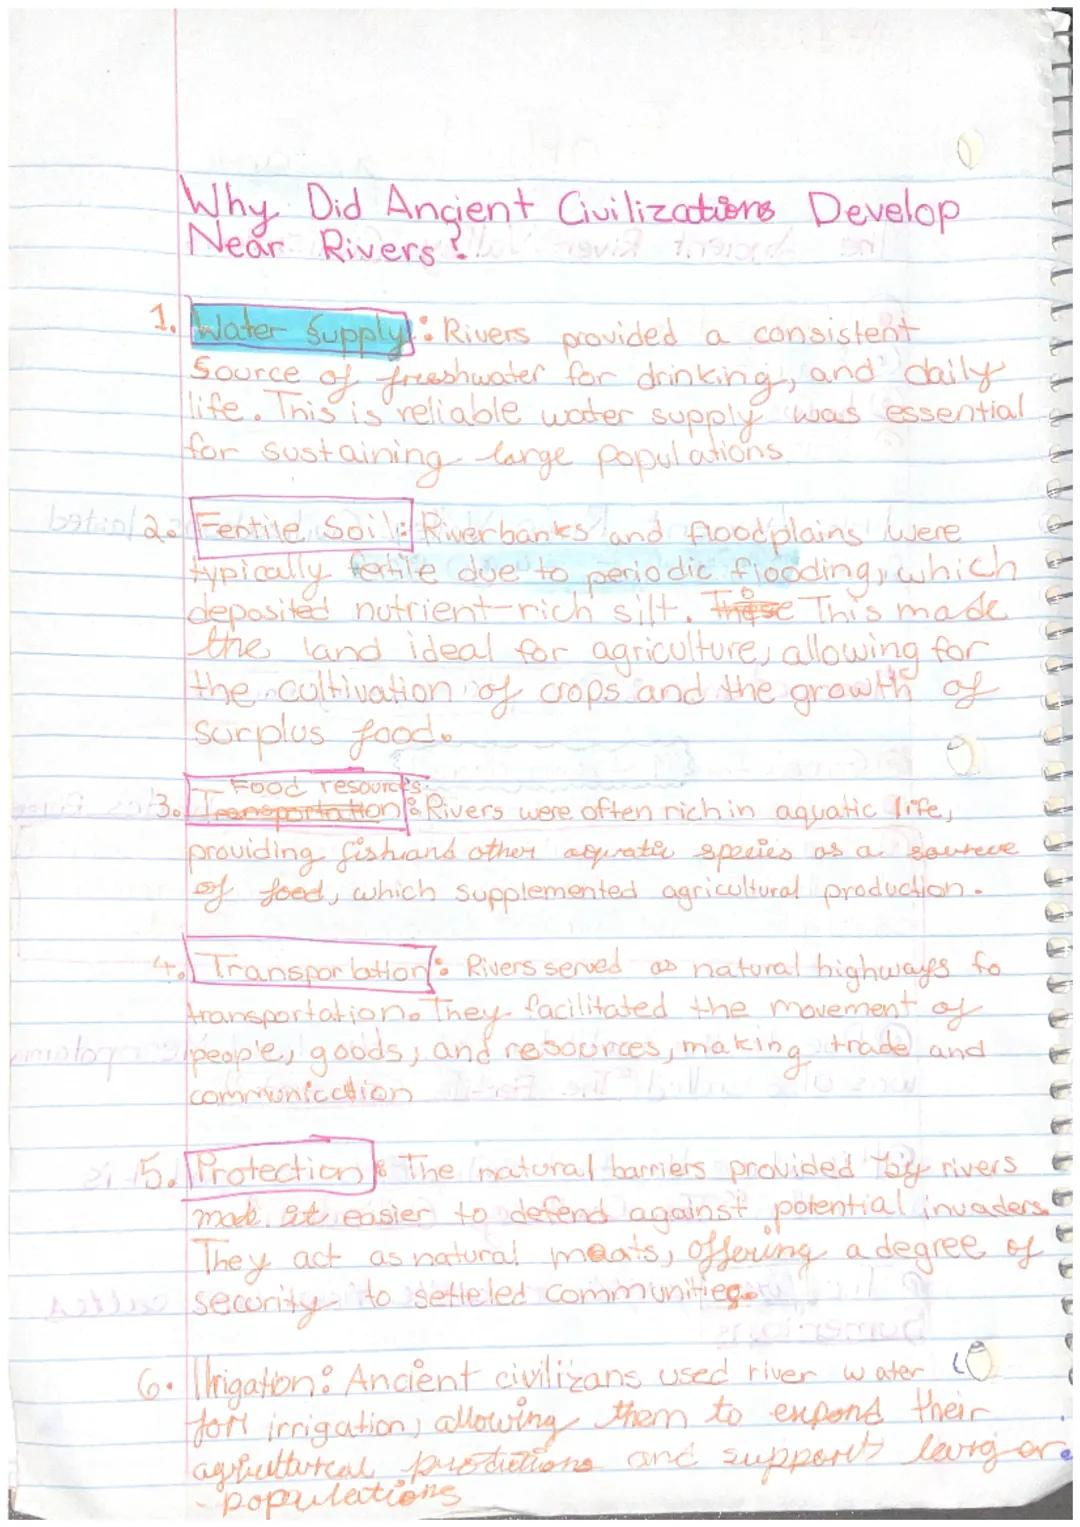 Why Did Ancient Civilizations Develop
Near Rivers?
1. Water Supply: Rivers provided a consistent
Source of freeshwater for drinking, and daily
life. This is reliable water supply was essential
for sustaining large populations
2. Fertile Soil: Riverbanks and floodplains were
typically fertile due to periodic flooding, which
deposited nutrient-rich silt. These This made
the land ideal for agriculture, allowing for
the cultivation of crops and the growth of
surplus food.
Food resources
3. Transportation: Rivers were often rich in aquatic life,
providing fish and other aquatic species as a source
of food, which supplemented agricultural production.
4. Transportation: Rivers served as natural highways fo
transportation. They facilitated the movement of
people, goods, and resources, making trade and
communication
5. Protection: The natural barriers provided by rivers
made it easier to defend against potential invaders
They act as natural moats, offering a degree of
security to setteled communities.
6. Irrigation: Ancient civilizans used river water
for irrigation, allowing them to expand their
agricultural productions and support larger
populations